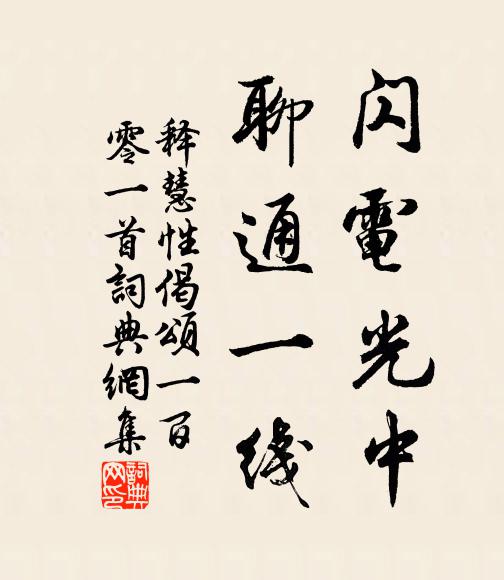 闪電光中
聊通一线
释慧性偈頌一百
零一首詞典網集
詞典网印